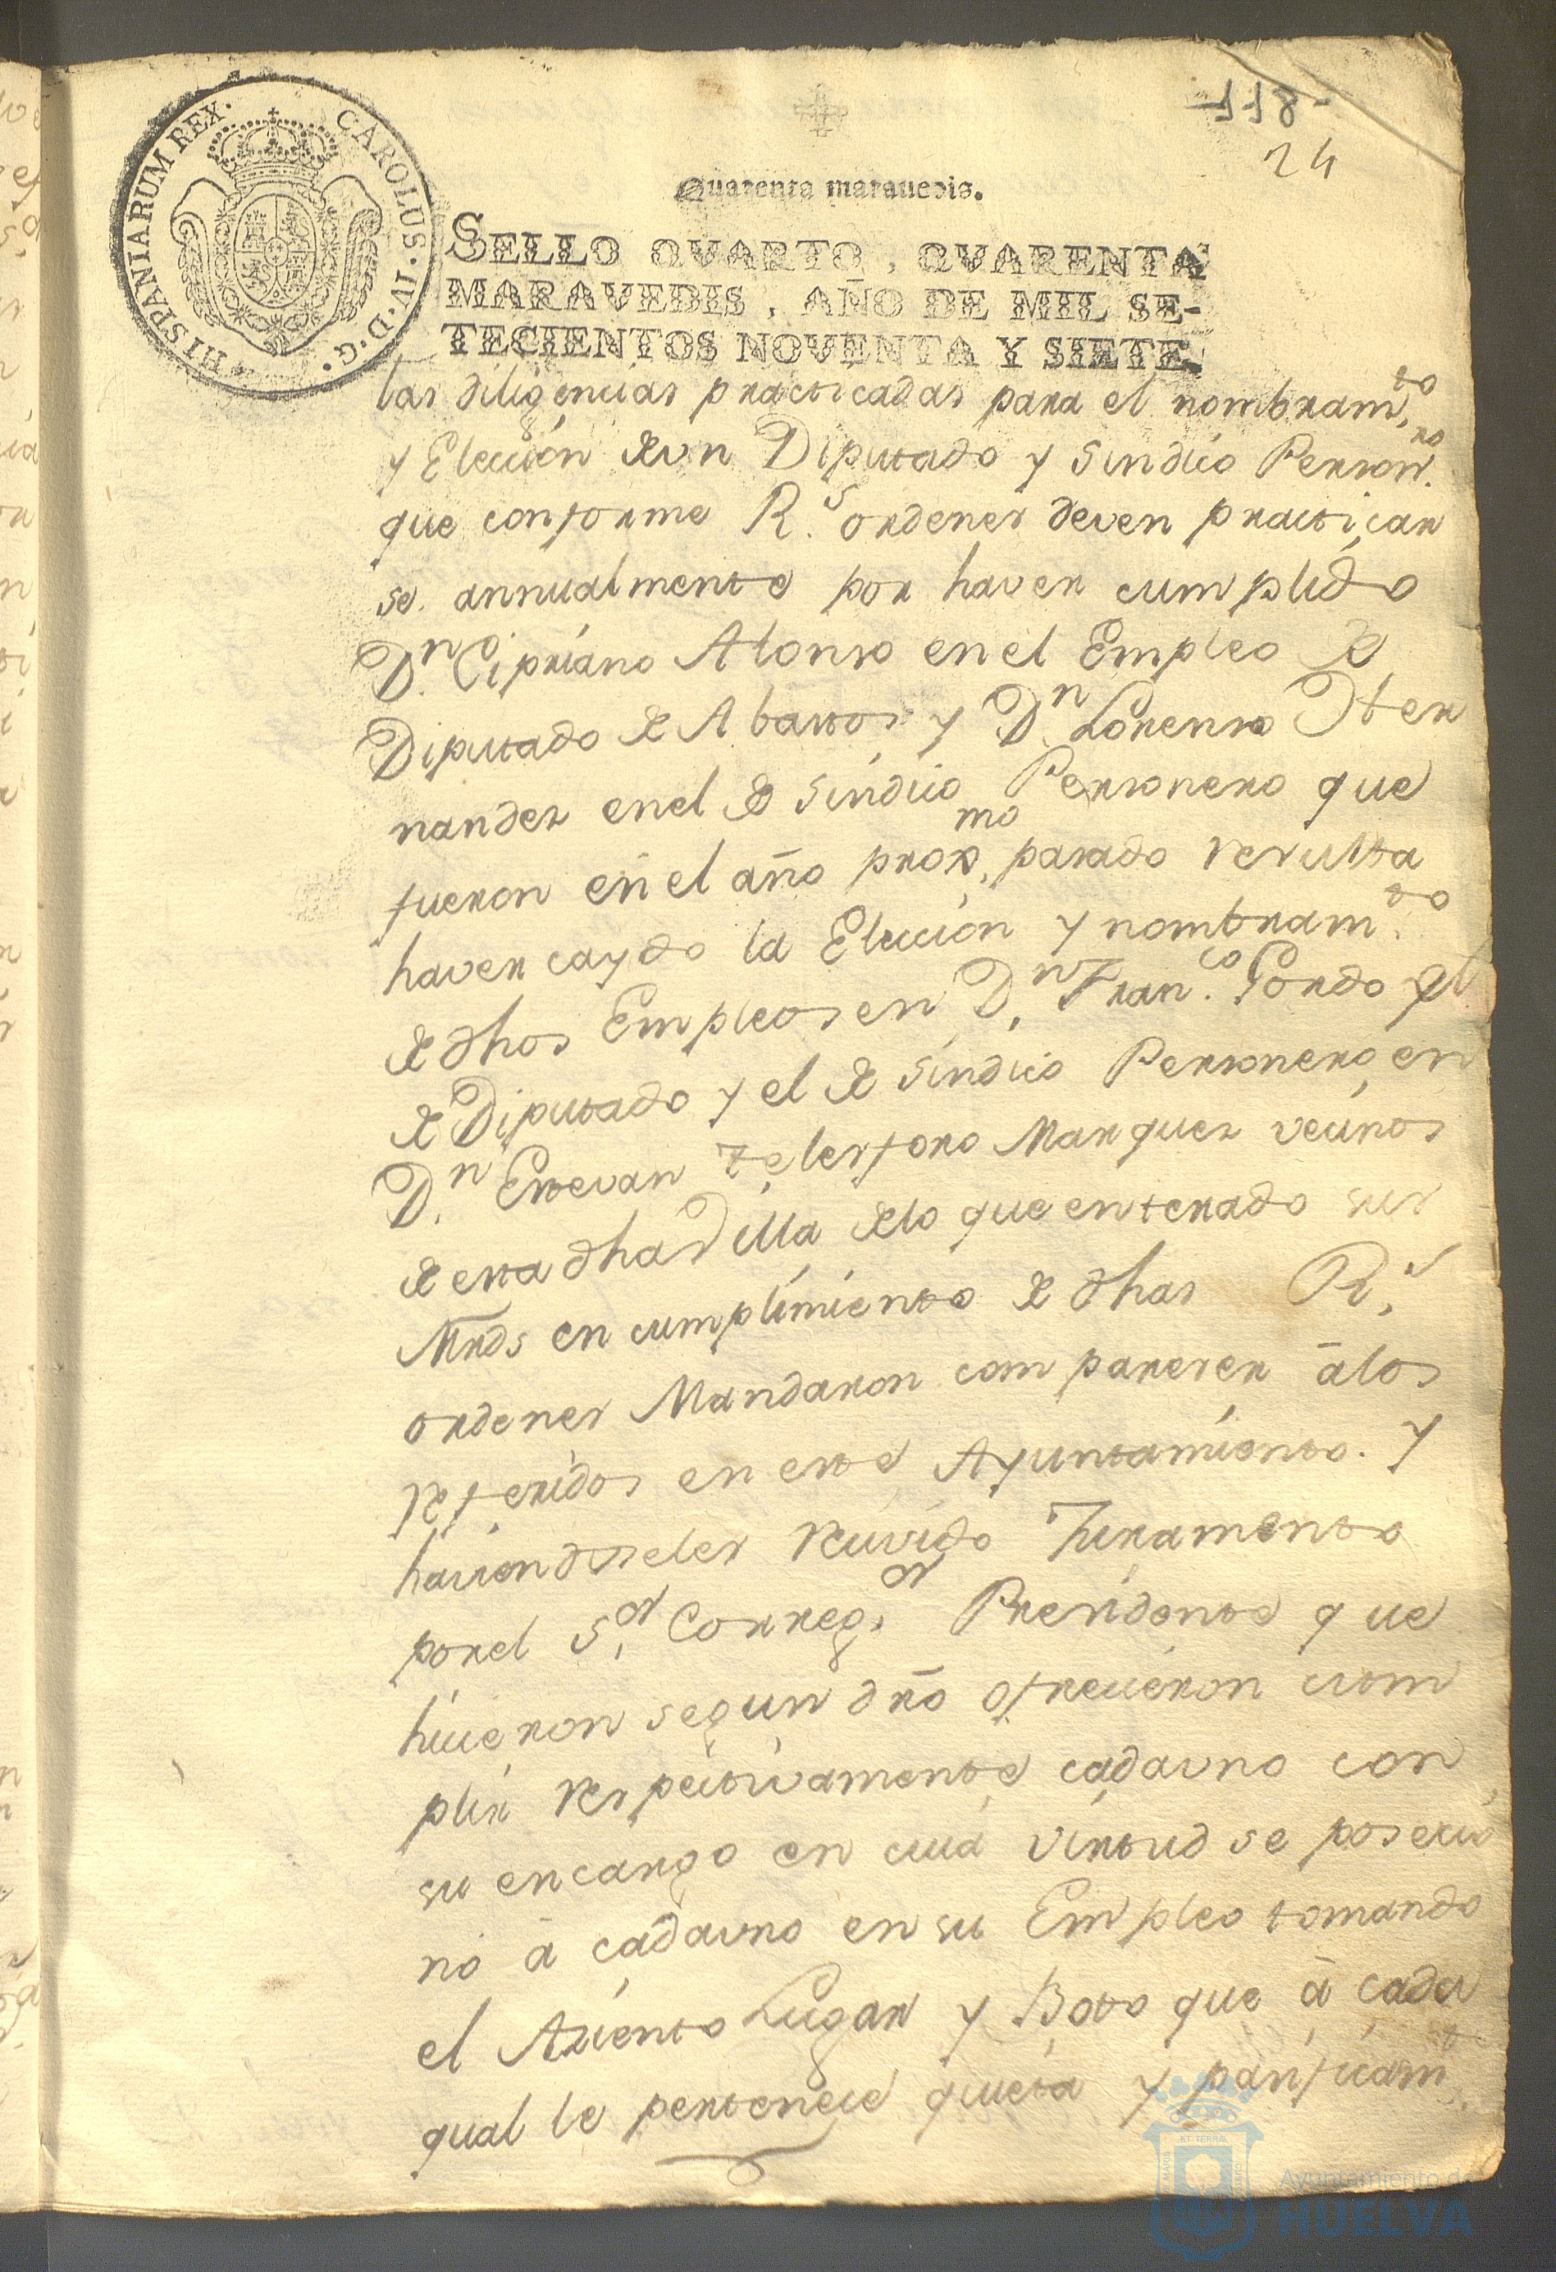 118-
24
HISPANIARUM REX. CAROLUS. IV. D. G.
Quarenta maravedis.
SELLO QVARTO, QVARENTA
MARAVEDIS, AÑO DE MIL SE-
TECIENTOS NOVENTA Y SIETE.
las diligencias practicadas para el nombram.to
y Elección de un Diputado y Sindico Person.ro
que conforme R.s ordenes deven practicar
se annualmente por haver cumplido
D.n Cipriano Alonso en el Empleo de
Diputado de Abastos y D.n Lorenso Her
nandez en el de Sindico Personero que
fueron en el año prox.mo pasado resulta
haver caydo la Elección y nombram.to
de dhos Empleos en D.n Fran.co Gordo el
de Diputado y el de Sindico Personero en
D.n Estevan Telesforo Marquez vecinos
de esta dha Villa de lo que enterado sus
Mrds en cumplimiento de dhas R.s
ordenes Mandaron compareser á los
referidos en este Ayuntamiento. y
haviendoseles recivido Juramento
por el S.or Correg.or Presidente que
hicieron segun dro ofrecieron cum
plir respectivamente cada uno con
su encargo en cuia virtud se posecio
nó á cada uno en su Empleo tomando
el Asiento Lugar y Boto que á cada
qual le pertenece quieta y pacificam.te
Ayuntamiento de
HUELVA